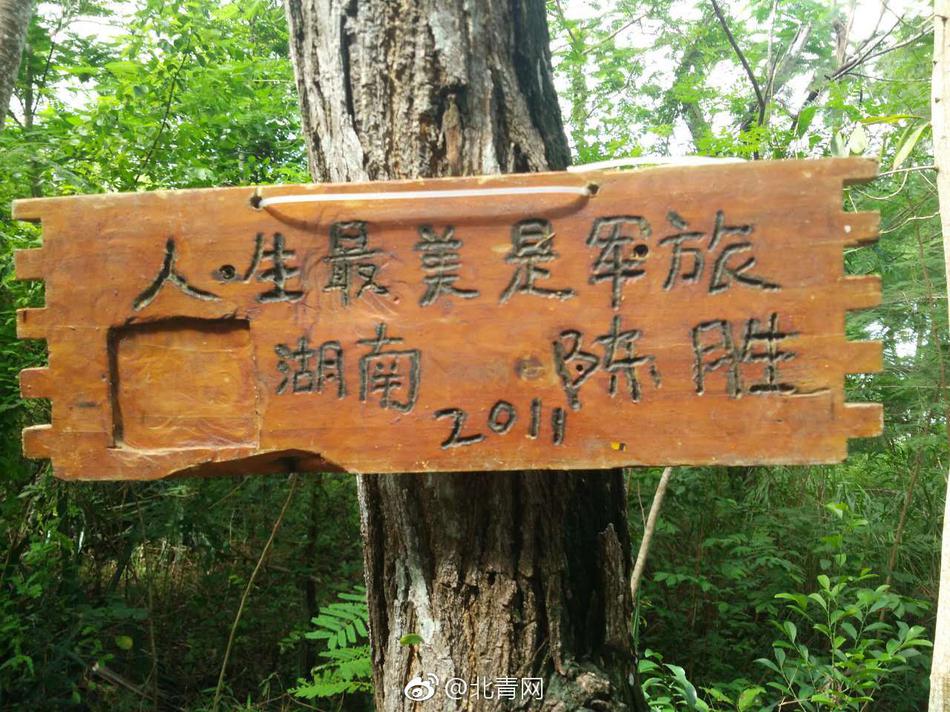 人生最美是军旅
湖南 陈胜
2011
@北青网